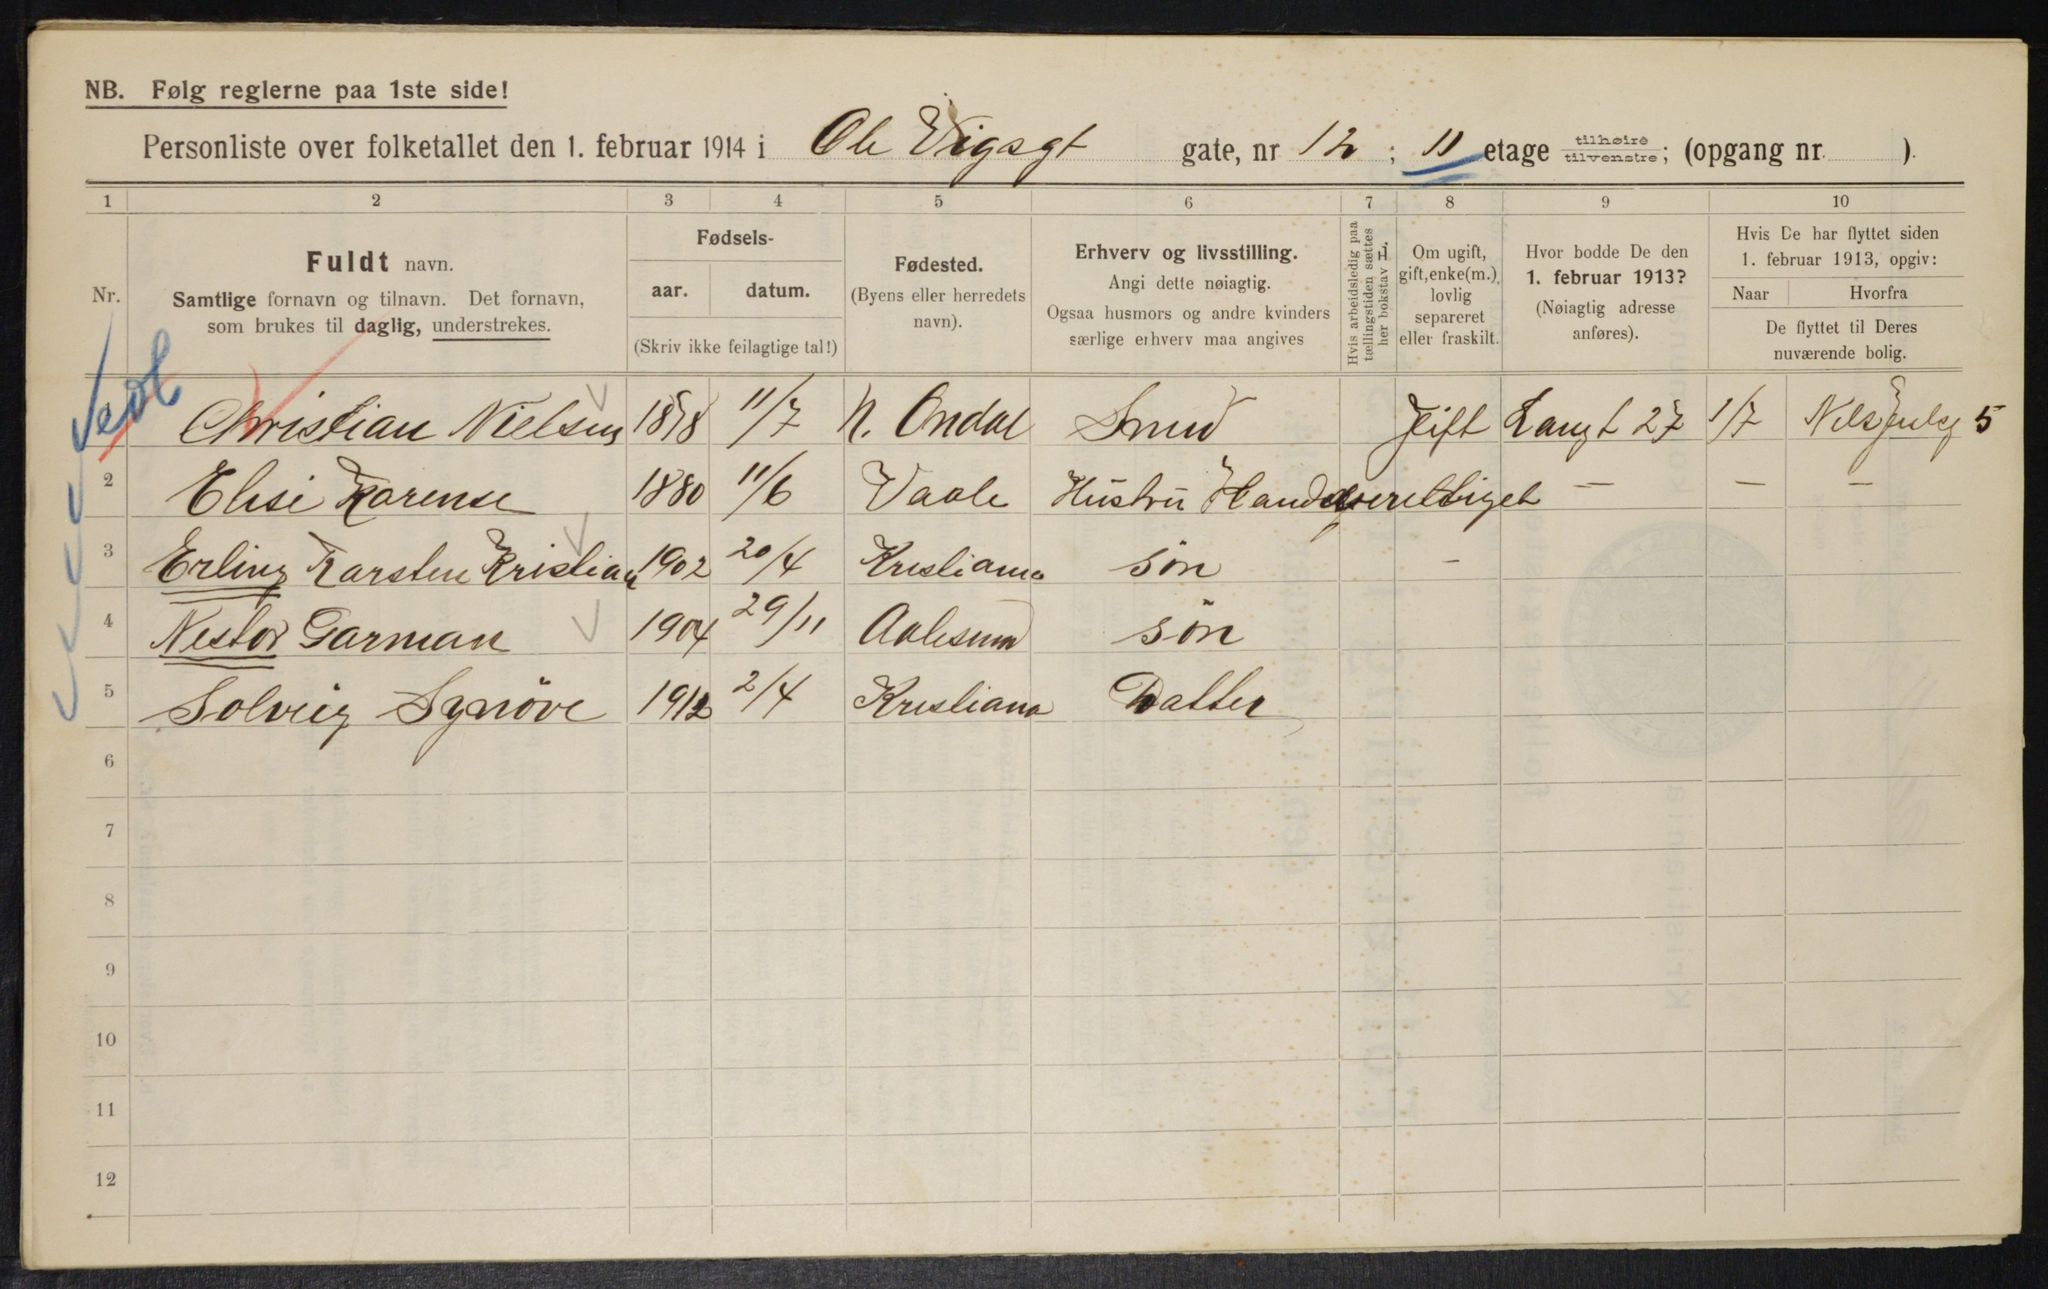 NB. Følg reglerne paa 1ste side!
Personliste over folketallet den 1. februar 1914 i Ole Vigsgt gate, nr 12 ; 11 etage tilhøire tilvenstre; (opgang nr. ).
1 2 3 4 5 6 7 8 9 10
Nr.
Fuldt navn.
Samtlige fornavn og tilnavn. Det fornavn,
som brukes til daglig, understrekes.
Fødsels-
aar. datum.
(Skriv ikke feilagtige tal!)
Fødested.
(Byens eller herredets
navn).
Erhverv og livsstilling.
Angi dette nøiagtig.
Ogsaa husmors og andre kvinders
særlige erhverv maa angives
Hvis arbeidsledig paa
tællingstiden sættes
her bokstav L.
Om ugift,
gift, enke(m.),
lovlig
separeret
eller fraskilt.
Hvor bodde De den
1. februar 1913?
(Nøiagtig adresse
anføres).
Hvis De har flyttet siden
1. februar 1913, opgiv:
Naar Hvorfra
De flyttet til Deres
nuværende bolig.
Christian Nielsen 1878 11/7 N. Ondal Smed Gift Langt 27 1/7 Nils Juelsg 5
2 Elise Karense 1880 11/6 Vaale Hustru Handelsberettiget — — —
3 Erling Karsten Kristian 1902 20/4 Kristiania søn -
4 Nestor Garman 1904 29/11 Aalesund søn
5 Solveig Synøve 1912 2/4 Kristiana Datter
6
7
8
9
10
11
12